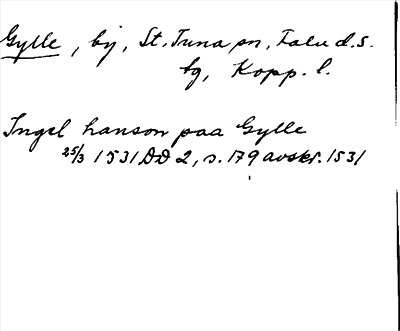 Gylle, by, St. Tuna sn, Falu d.s.
bg, Kopp. l.
Ingel hanson paa Gylle
25/3 1531 DD 2, s. 179 avskr. 1531